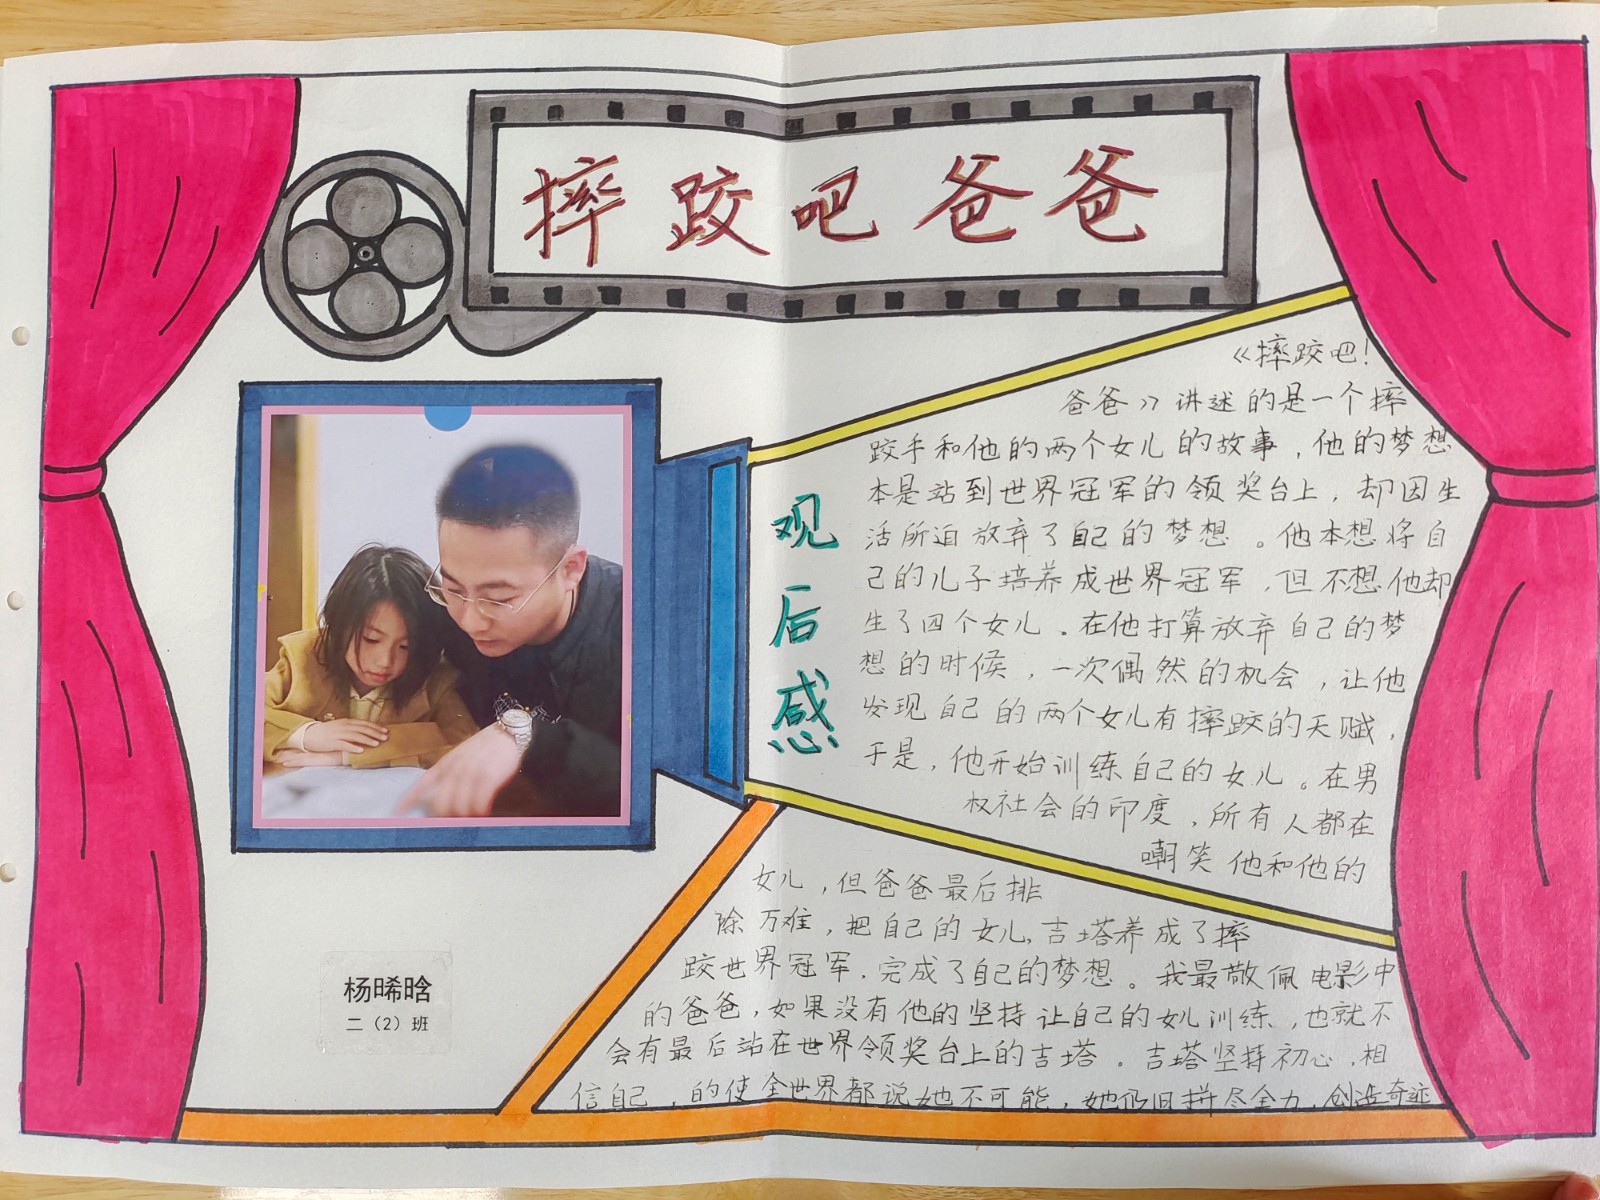 摔跤吧爸爸
观后感
《摔跤吧!
爸爸》讲述的是一个摔
跤手和他的两个女儿的故事，他的梦想
本是站到世界冠军的领奖台上，却因生
活所迫放弃了自己的梦想。他本想将自
己的儿子培养成世界冠军，但不想他却
生了四个女儿。在他打算放弃自己的梦
想的时候，一次偶然的机会，让他
发现自己的两个女儿有摔跤的天赋，
于是，他开始训练自己的女儿。在男
权社会的印度，所有人都在
嘲笑他和他的
女儿，但爸爸最后排
除万难，把自己的女儿，吉塔养成了摔
跤世界冠军，完成了自己的梦想。我最敬佩电影中
的爸爸，如果没有他的坚持让自己的女儿训练，也就不
会有最后站在世界领奖台上的吉塔。吉塔坚持初心，相
信自己，的使全世界都说她不可能，她仍旧拼尽全力，创造奇迹
杨晞晗
二（2）班